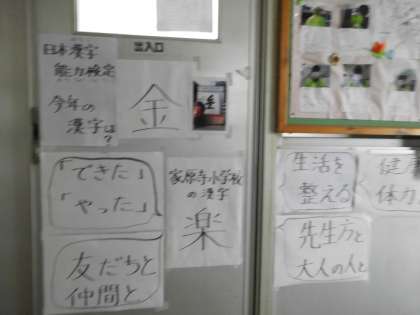 出入口
日本漢字
能力検定
今年の
漢字は?
金
「できた」
「やった」
家原寺小学校
の漢字
楽
友だちと
仲間と
生活を
整える
健康
体力
先生方と
大人の人と